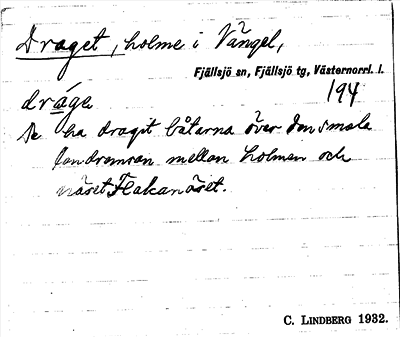 Draget, holme i Vängel,
Fjällsjö sn, Fjällsjö tg, Västernorrl. l.
dráge 194
De ha dragit båtarna över den smala
landremsan mellan holmen och
näset Flakanäset.
C. LINDBERG 1932.